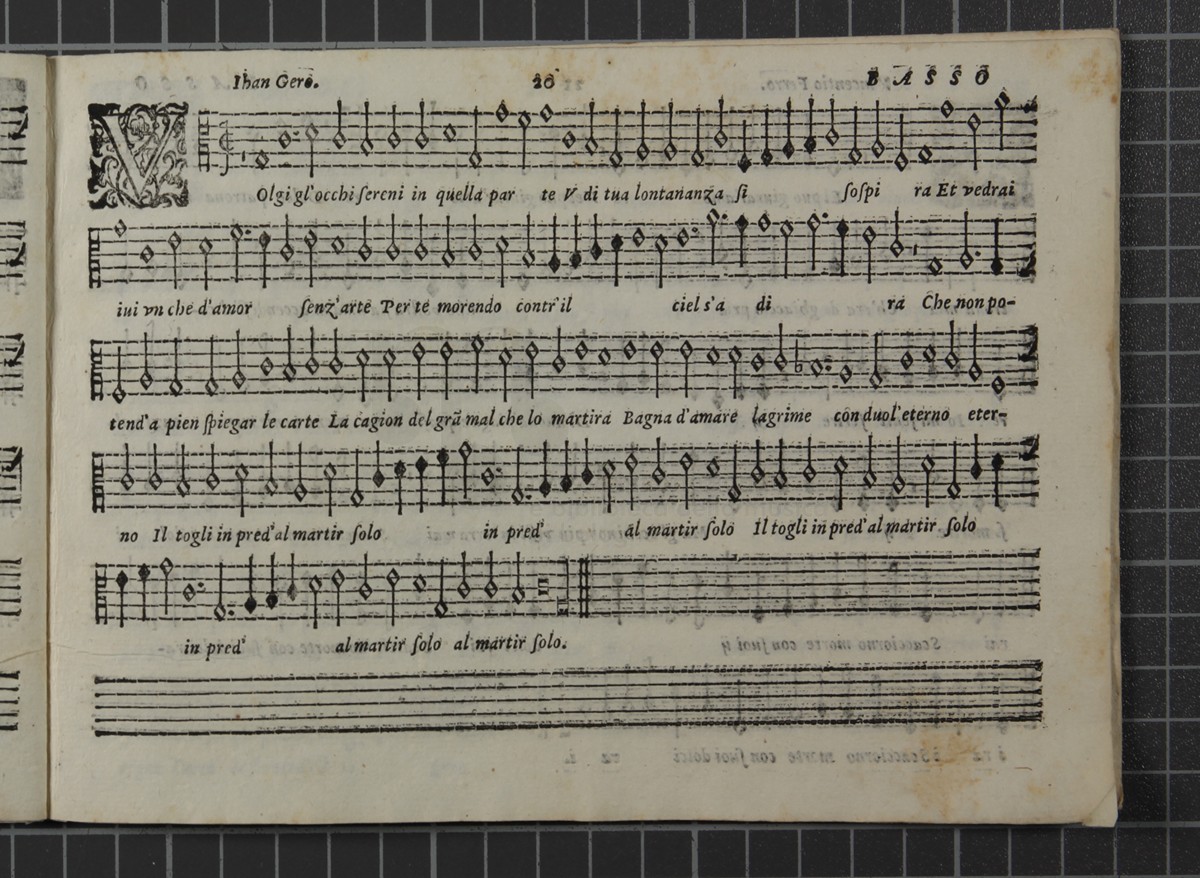 Ihan Gero. 26 BASSO
VOlgi gl'occhi sereni in quella par te V di tua lontananza si sospi ra Et vedrai
iui vn che d'amor senz'arte Per te morendo contr'il ciel s'a di ra Che non po-
tend'a pien spiegar le carte La cagion del grã mal che lo martira Bagna d'amare lagrime con duol'eterno eter-
no Il togli in pred'al martir solo in pred' al martir solo Il togli in pred'al martir solo
in pred' al martir solo al martir solo.